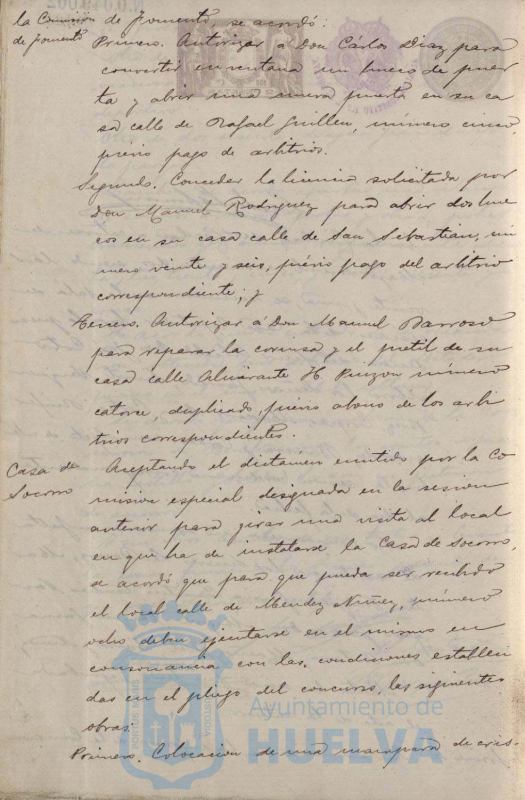 la Comisión de fomento, se acordó:
de fomento
Primero. Autorizar á Don Cárlos Diaz para
convertir en ventana un hueco de puer
ta y abrir una nueva puerta en su ca
sa calle de Rafael Guillen, número cinco,
prévio pago de arbitrios.
Segundo. Conceder la licencia solicitada por
Don Manuel Rodriguez para abrir dos hue
cos en su casa calle de San Sebastian, nú
mero veinte y seis, prévio pago del arbitrio
correspondiente; y
Tercero. Autorizar á Don Manuel Barroso
para reparar la cornisa y el pretil de su
casa calle Almirante H Pinzon número
catorce, duplicado, prévio abono de los arbi
trios correspondientes.
Casa de
Socorro
Aceptando el dictámen emitido por la Co
mision especial designada en la sesion
anterior para girar una visita al local
en que ha de instalarse la Casa de Socorro,
se acordó que para que pueda ser recibido
el local calle de Mendez Nuñez, número
ocho deben ejecutarse en el mismo en
consonancia con las condiciones estableci
das en el pliego del concurso, las siguientes
obras:
Primero. Colocacion de una mampara de cris-
Ayuntamiento de
HUELVA